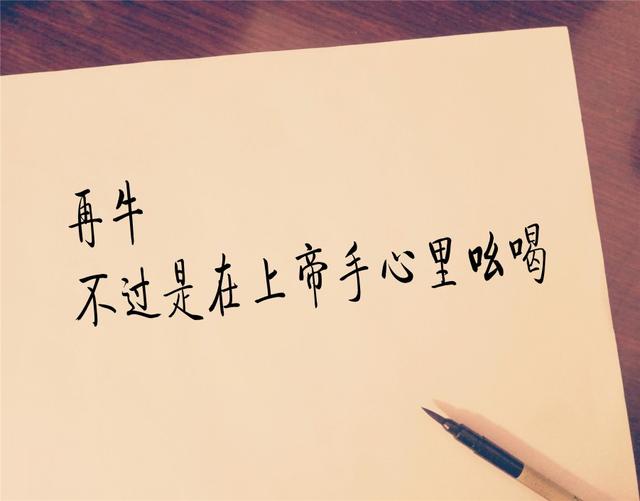 再牛
不过是在上帝手心里吆喝